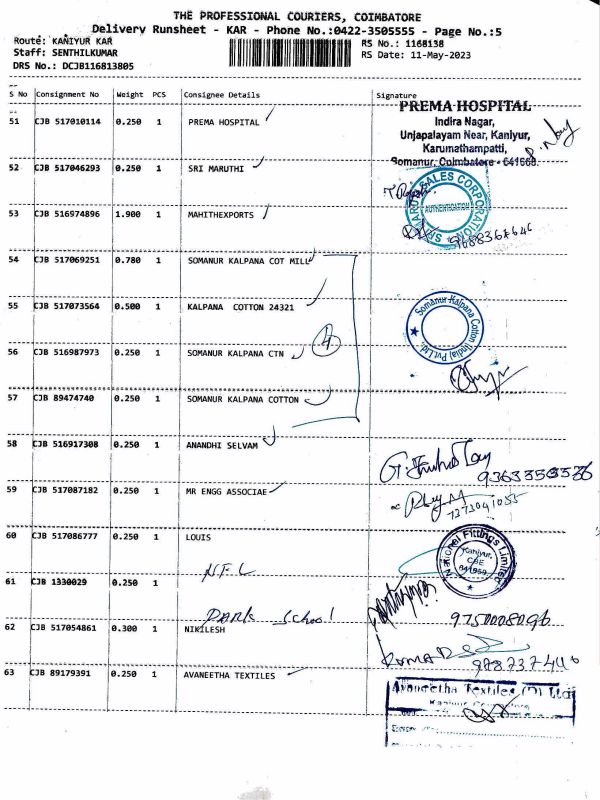 THE PROFESSIONAL COURIERS, COIMBATORE
Delivery Runsheet - KAR - Phone No.:0422-3505555 - Page No.:5
Route: KANIYUR KAR
RS No.: 1168138
Staff: SENTHILKUMAR
RS Date: 11-May-2023
DRS No.: DCJB116813805
S No Consignment No Weight PCS Consignee Details Signature
51 CJB 517010114 0.250 1 PREMA HOSPITAL
PREMA HOSPITAL
Indira Nagar,
Unjapalayam Near, Kaniyur,
Karumathampatti,
Somanur, Coimbatore - 641668.
52 CJB 517046293 0.250 1 SRI MARUTHI
SALES CORPORATION
AUTHENTICATION
53 CJB 516974896 1.900 1 MAHITHEXPORTS
54 CJB 517069251 0.780 1 SOMANUR KALPANA COT MILL
55 CJB 517073564 0.500 1 KALPANA COTTON 24321
Somanur Kalpana Cotton (India) Pvt.Ltd.
4
56 CJB 516987973 0.250 1 SOMANUR KALPANA CTN
57 CJB 89474740 0.250 1 SOMANUR KALPANA COTTON
58 CJB 516917308 0.250 1 ANANDHI SELVAM
59 CJB 517087182 0.250 1 MR ENGG ASSOCIAE
7373041055
60 CJB 517086777 0.250 1 LOUIS
National Fittings Limited
Kaniyur,
CBE
641659
61 CJB 1330029 0.250 1
Park School
9750008096
62 CJB 517054861 0.300 1 NIKILESH
63 CJB 89179391 0.250 1 AVANEETHA TEXTILES
Avaneetha Textiles (P) Ltd